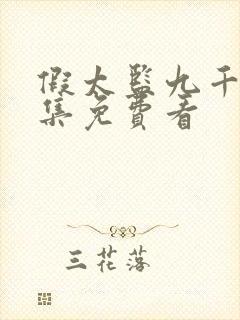 假太监九千
集免费看
三花落